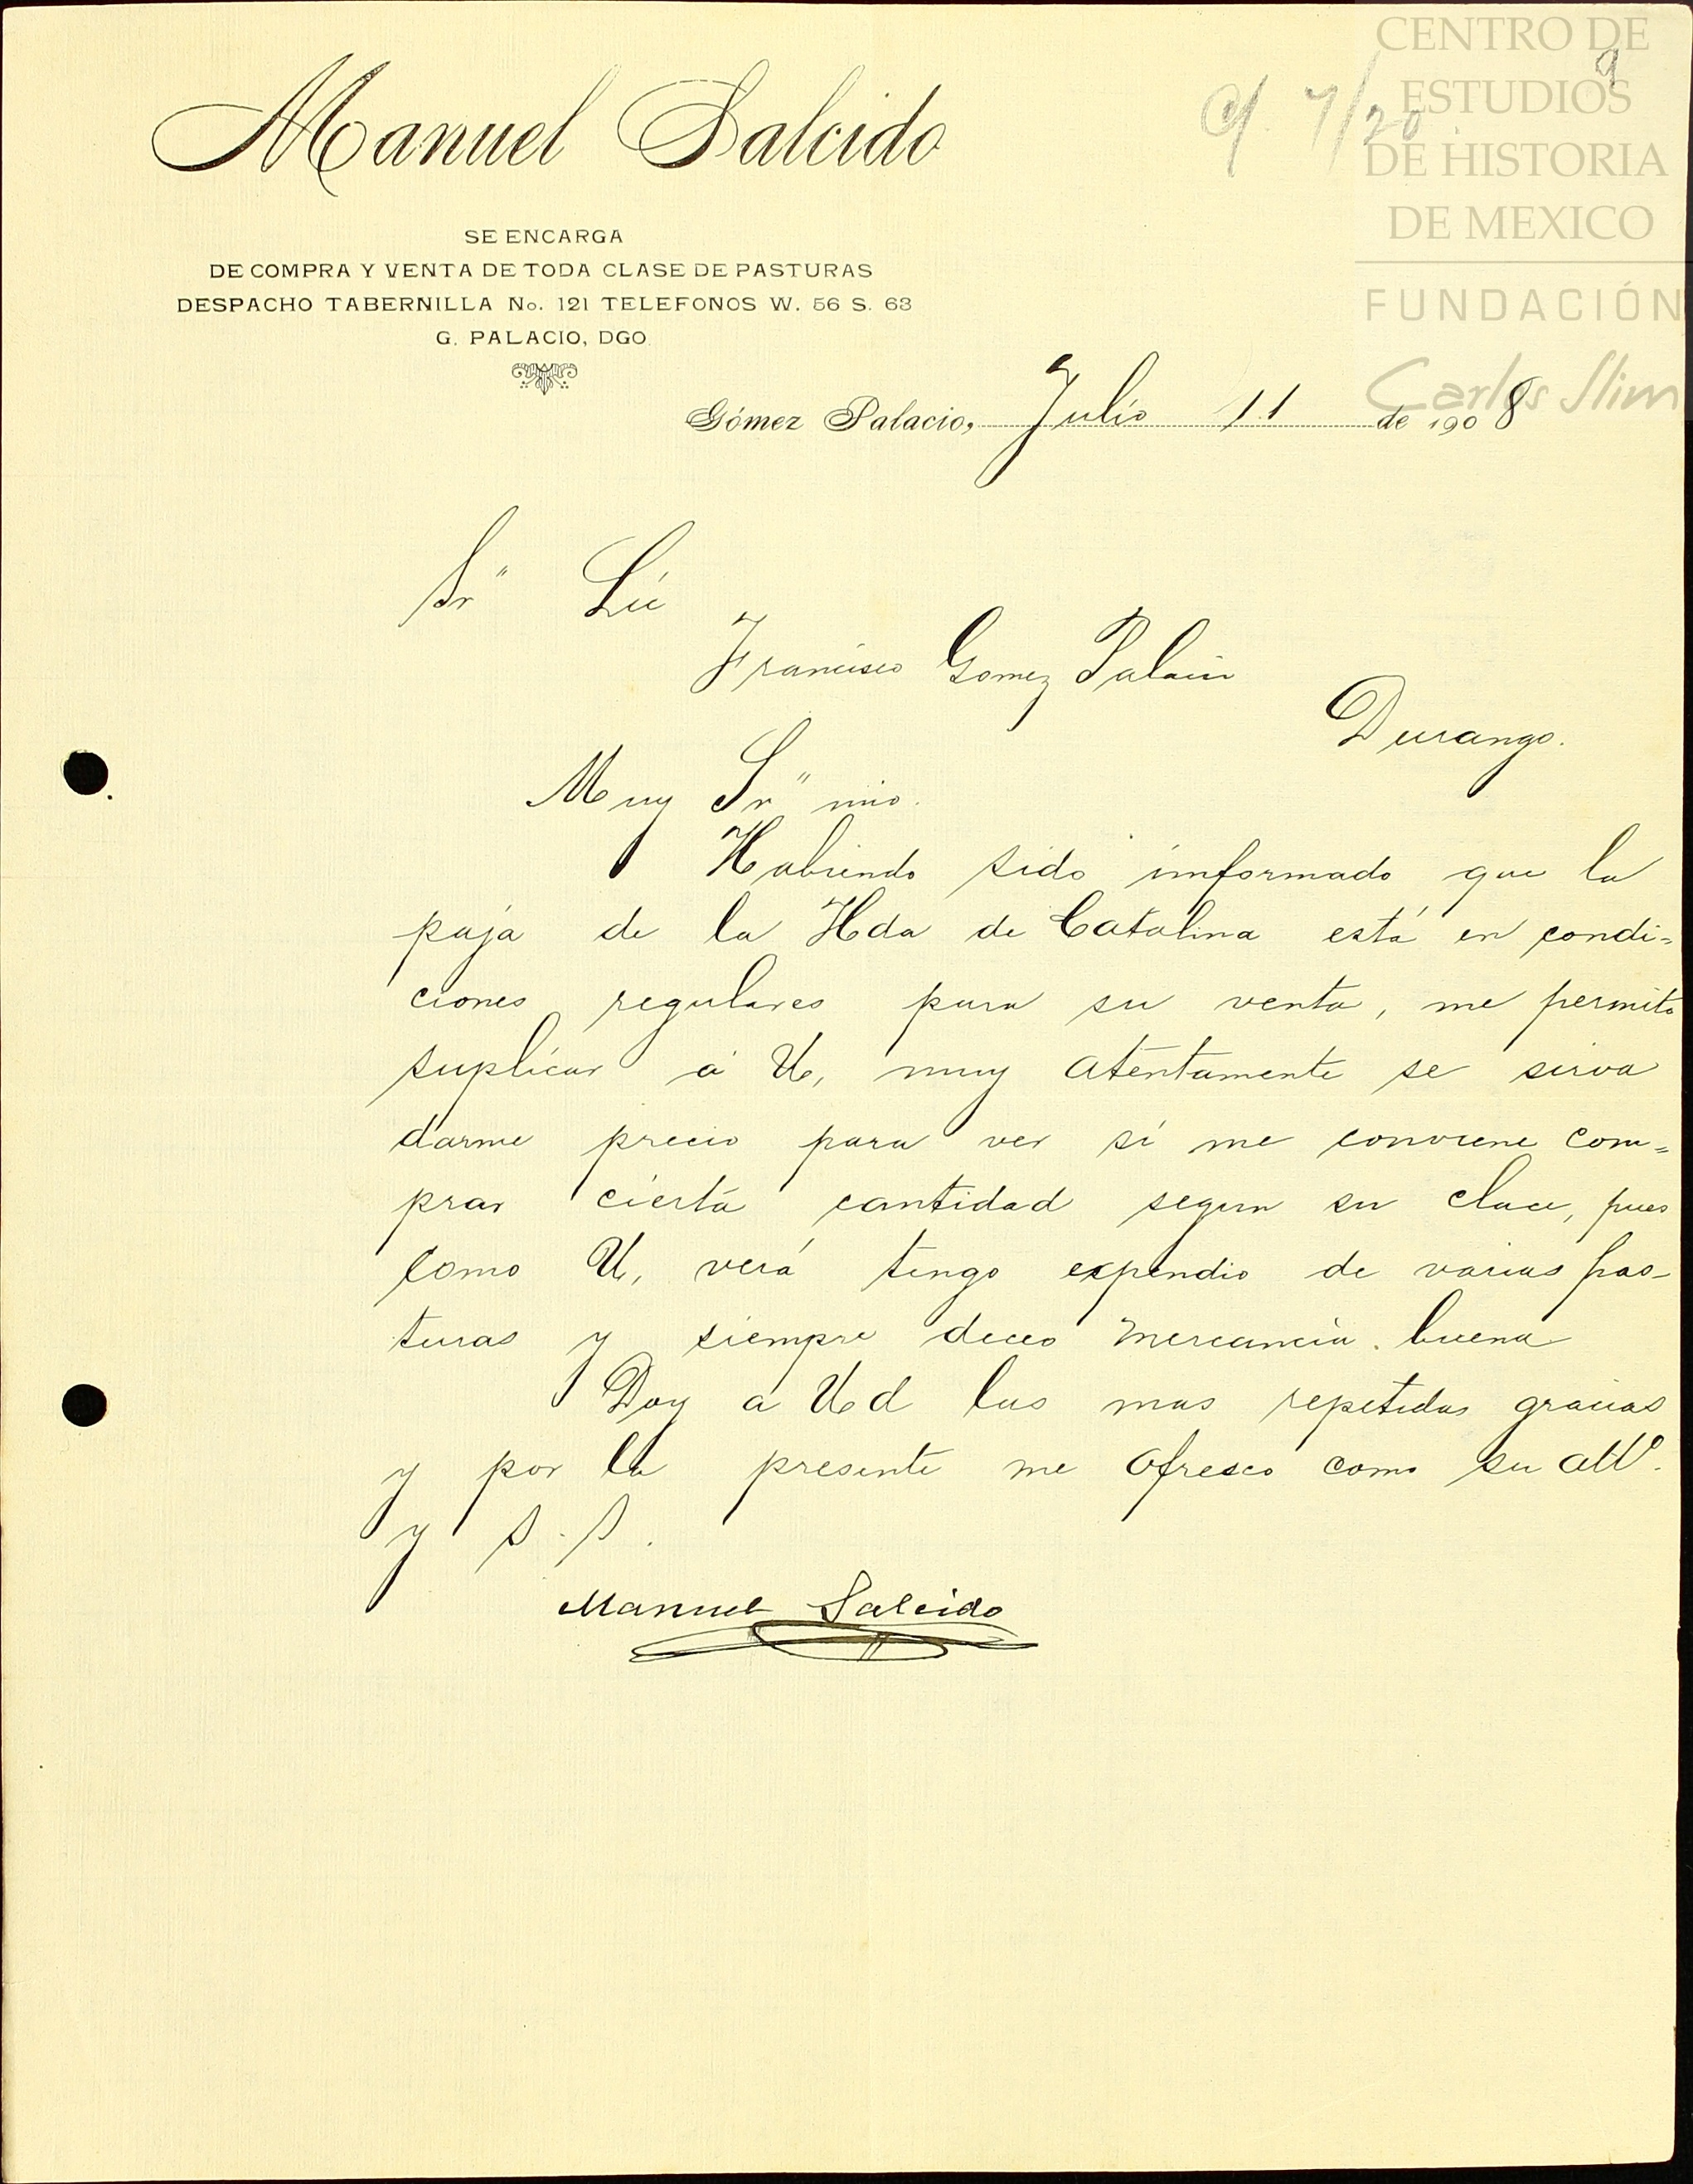 Manuel Salcido
SE ENCARGA
DE COMPRA Y VENTA DE TODA CLASE DE PASTURAS
DESPACHO TABERNILLA No. 121 TELEFONOS W. 56 S. 63
G. PALACIO, DGO.
CENTRO DE
ESTUDIOS
DE HISTORIA
DE MEXICO
FUNDACIÓN
Carlos Slim
9
C/. 7/20
Gómez Palacio, Julio 11 de 1908
Sr" Lic
Francisco Gomez Palacio
Durango.
Muy Sr" mio.
Habiendo sido imformado que la
paja de la Hda de Catalina está en condi=
ciones regulares para su venta, me permito
suplicar á U, muy atentamente se sirva
darme precio para ver si me conviene com=
prar cierta cantidad segun su clace, pues
como U, verá tengo expendio de varias pas-
turas y siempre deceo mercancia buena
Doy a Ud las mas repetidas gracias
y por la presente me ofresco como su atto.
y S. S.
Manuel Salcido